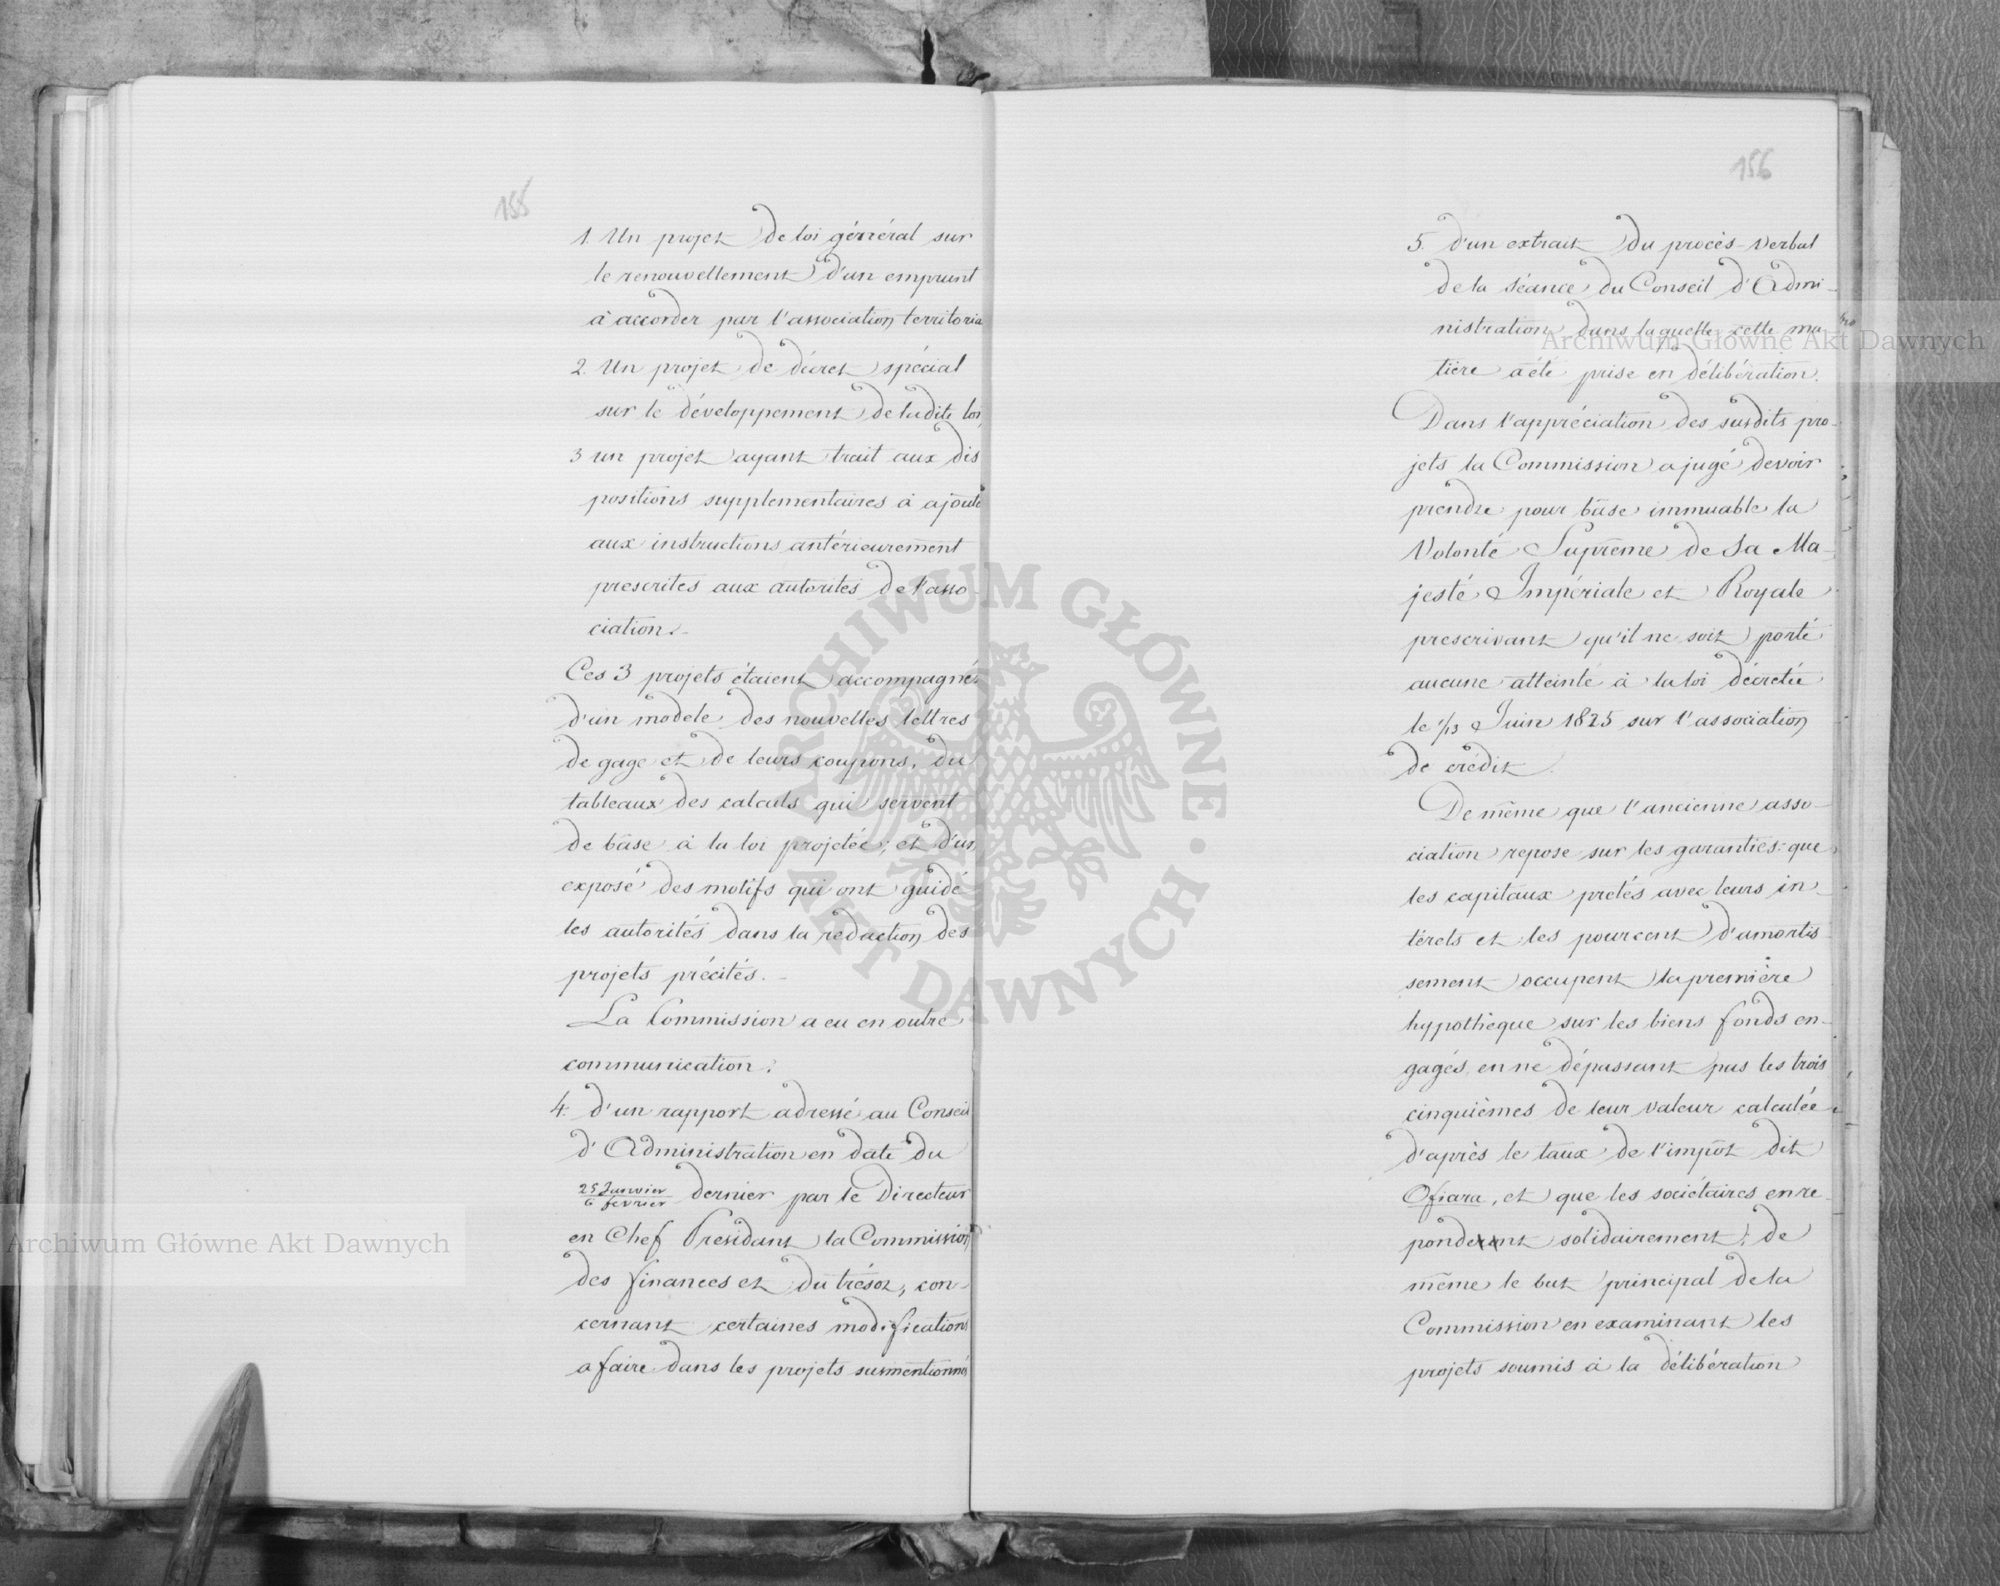 155
1. Un projet de loi général sur
le renouvellement d'un emprunt
à accorder par l'association territoria
2. Un projet de décret spécial
sur le développement de ladite loi,
3 un projet ayant trait aux dis
positions supplementaires à ajoute
aux instructions antérieurement
prescrites aux autorités de l'asso-
ciation.-
Ces 3 projets étaient accompagnés
d'un modele des nouvelles lettres
de gage et de leurs coupons, du
tableaux des calculs qui servent
de bâse à la loi projetée; et d'un
exposé des motifs qui ont guidé
les autorités dans la redaction des
projets précités. -
La Commission a eu en outre
communication:
4. d'un rapport adressé au Conseil
d'Administration en date du
25 Janvier
6 fevrier dernier par le Directeur
en Chef Présidant la Commission
des finances et du trésor, con-
cernant certaines modifications
a faire dans les projets susmentionnés
156
5. d'un extrait du procès-verbal
de la séance du Conseil d'Admi-
nistration dans laquelle cette ma
tière a été prise en délibération.
Dans l'appréciation des susdits pro-
jets la Commission a jugé devoir
prendre pour bâse immuable la
Volonté Suprême de Sa Ma-
jesté Impériale et Royale
prescrivant qu'il ne soit porté
aucune atteinte à la loi décretée
le 1/13 Juin 1825 sur l'association
de crédit.
De même que l'ancienne asso-
ciation repose sur les garanties: que
les capitaux pretés avec leurs in-
térets et les pourcent d'amortis-
sement occupent la première
hypothèque sur les biens fonds en-
gagés en ne dépassant pas les trois
cinquièmes de leur valeur calculée
d'après le taux de l'impôt dit
Ofiara, et que les sociétaires en re-
pondent solidairement; de
même le but principal de la
Commission en examinant les
projets soumis à la délibération
Archiwum Główne Akt Dawnych
Archiwum Główne Akt Dawnych
ARCHIWUM GŁÓWNE · AKT DAWNYCH ·